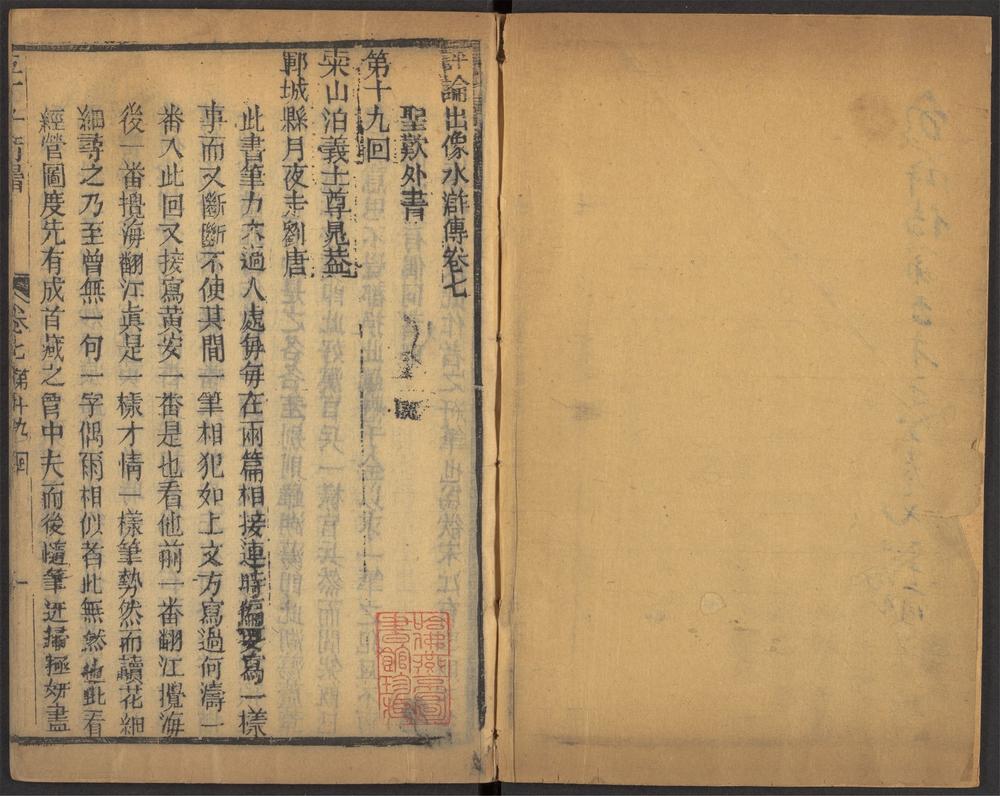 評論出像水滸傳卷七
聖歎外書
第十九回
梁山泊義士尊晁蓋
鄆城縣月夜走劉唐
此書筆力大過人處每每在兩篇相接連時偏要寫一樣
事而又斷斷不使其間一筆相犯如上文方寫過何濤一
番入此回又接寫黃安一番是也看他前一番翻江攪海
後一番攪海翻江眞是一樣才情一樣筆勢然而讀者細
細尋之乃至曾無一句一字偶爾相似者此無他也此看
經營圖度先有成首藏之胷中夫而後隨筆迅掃極妍盡
五才子奇書
卷七第十九回
一
哈佛燕京圖書館珍藏